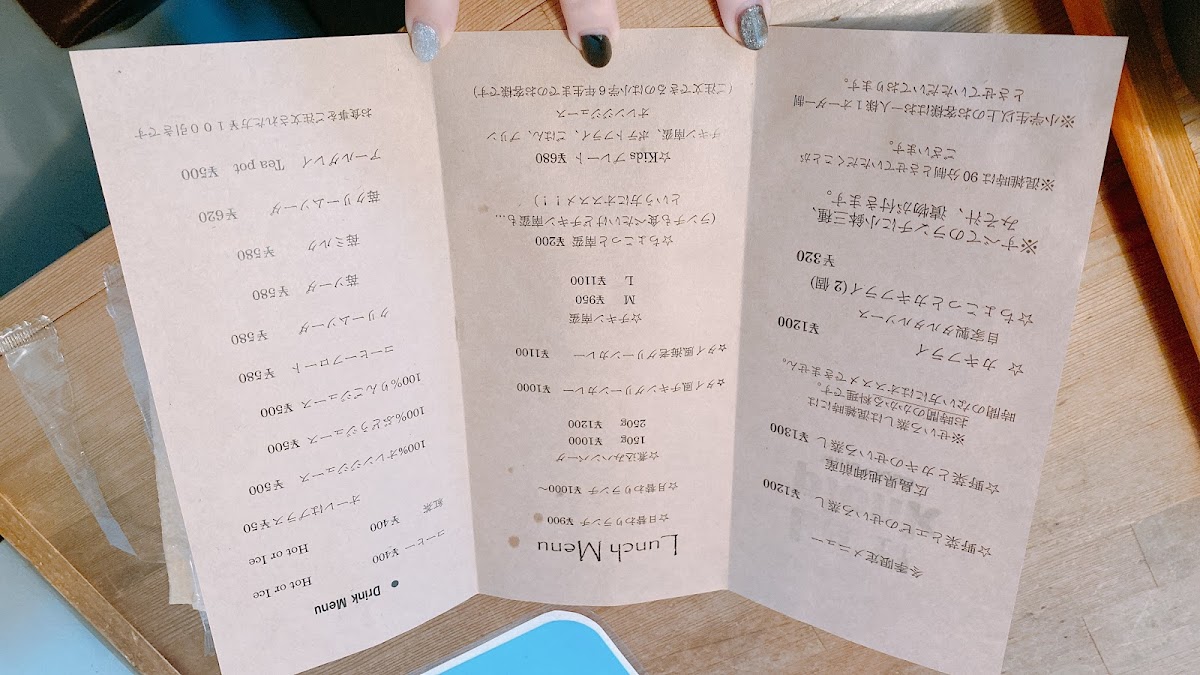 冬季限定メニュー
☆野菜とエビのせいろ蒸し ¥1200
広島県地御前産
☆野菜とカキのせいろ蒸し ¥1300
※せいろ蒸しは混雑時には
お時間のかかる料理です。
時間のない方にはオススメできません。
☆ カキフライ ¥1200
自家製タルタルソース
☆ちょこっとカキフライ(2個)
¥320
※すべてのランチに小鉢三種、
みそ汁、漬物が付きます。
※混雑時は90分制とさせていただくことが
ございます。
※小学生以上のお客様はお一人様1オーダー制
とさせていただいております。
Lunch Menu
☆日替わりランチ ¥900
☆月替わりランチ ¥1000〜
☆煮込みハンバーグ
150g ¥1000
250g ¥1200
☆タイ風チキングリーンカレー ¥1000
☆タイ風海老グリーンカレー ¥1100
☆チキン南蛮
M ¥950
L ¥1100
☆ちょこっと南蛮 ¥200
(ランチも食べたいけどチキン南蛮も…
という方にオススメ！！)
☆Kidsプレート ¥680
チキン南蛮、ポテトフライ、ごはん、プリン
オレンジジュース
(ご注文できるのは小学6年生までのお客様です)
● Drink Menu
コーヒー ¥400 Hot or Ice
紅茶 ¥400 Hot or Ice
オーレはプラス¥50
100%オレンジジュース ¥500
100%ぶどうジュース ¥500
100%りんごジュース ¥500
コーヒーフロート ¥580
クリームソーダ ¥580
苺ソーダ ¥580
苺ミルク ¥580
苺クリームソーダ ¥620
アールグレイ Tea pot ¥500
お食事をご注文された方¥100引きです